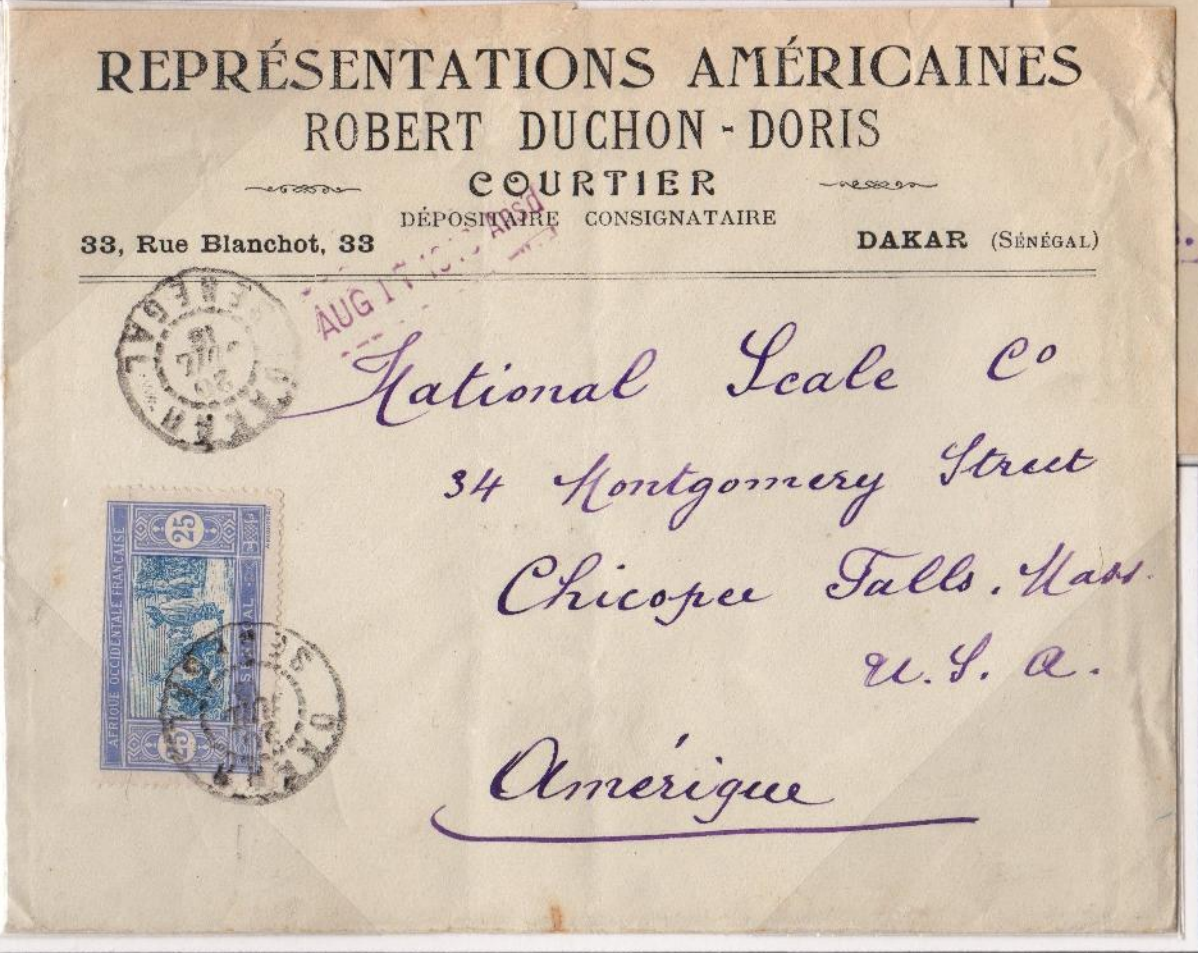 REPRÉSENTATIONS AMÉRICAINES
ROBERT DUCHON-DORIS
COURTIER
DÉPOSITAIRE CONSIGNATAIRE
33, Rue Blanchot, 33
DAKAR (SÉNÉGAL)
AUG 17
ANSD
DAKAR
SÉNÉGAL
National Scale Co
34 Montgomery Street
Chicopee Falls. Mass.
U.S.A.
Amérique
AFRIQUE OCCIDENTALE FRANÇAISE
25
25
SÉNÉGAL